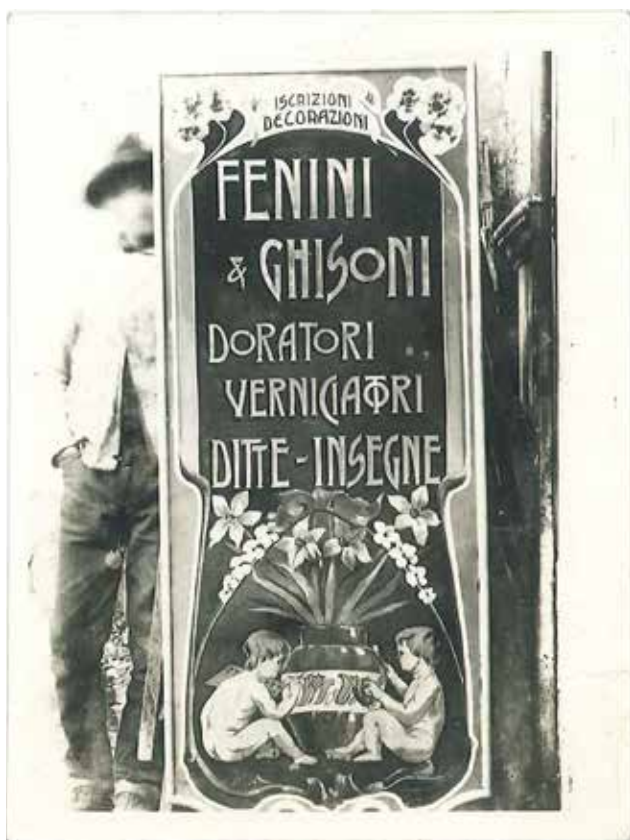 ISCRIZIONI
DECORAZIONI
FENINI
& GHISONI
DORATORI
VERNICIATORI
DITTE-INSEGNE